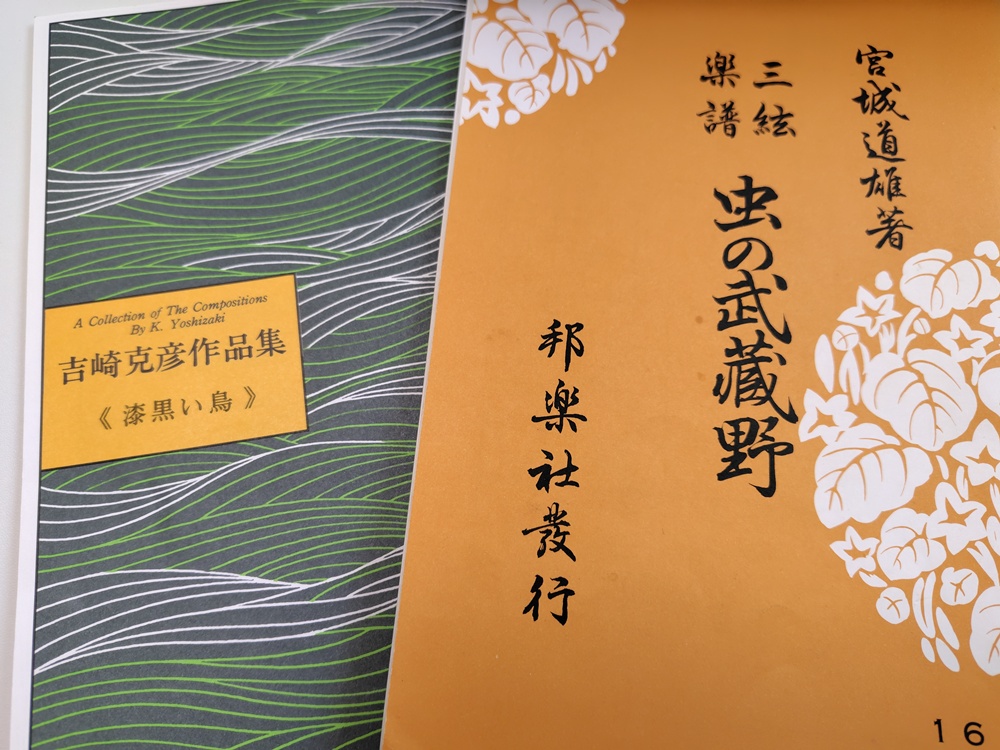 A Collection of The Compositions
By K. Yoshizaki
吉崎克彦作品集
《漆黒い鳥》
宮城道雄著
三絃
楽譜
虫の武蔵野
邦楽社發行
16